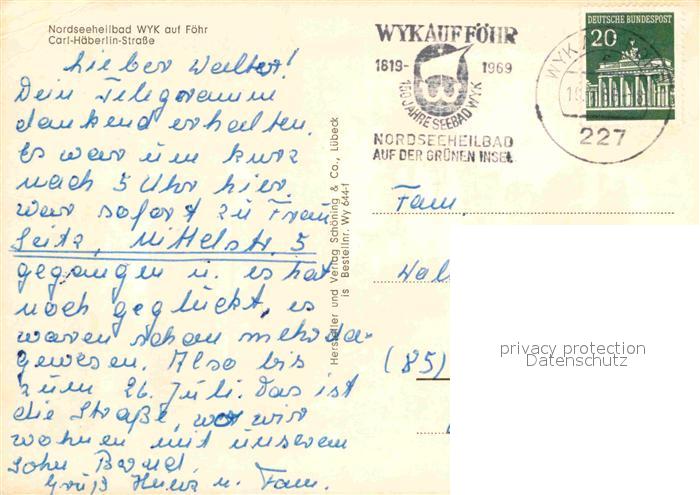 Nordseeheilbad WYK auf Föhr
Carl-Häberlin-Straße
Lieber Walter!
Dein Telegramm
dankend erhalten.
Es war um kurz
nach 5 Uhr hier.
war sofort zu Frau
Seitz, Mittelstr. 5
gegangen u. es hat
noch geglückt, es
waren schon mehr da-
gewesen. Also bis
zum 26. Juli. Das ist
die Straße, wo wir
wohnen mit unserem
Sohn Bernd.
Gruß Heinz u. Fam.
Hersteller und Verlag Schöning & Co., Lübeck
is Bestellnr. Wy 644-1
WYK AUF FÖHR
1819-1969
150 JAHRE SEEBAD WYK
NORDSEEHEILBAD
AUF DER GRÜNEN INSEL
DEUTSCHE BUNDESPOST
20
WYK
227
Fam.
Wal
(85)
privacy protection
Datenschutz